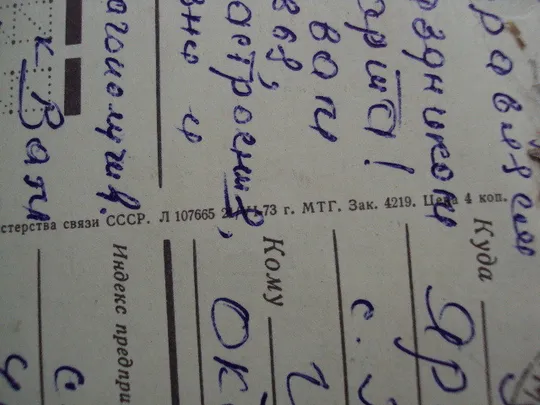 равляем
здником
арта!
вам
овья,
астроения,
зни и
агополучия.
стерства связи СССР. Л 107665 73 г. МТГ. Зак. 4219. Цена 4 коп.
Куда Яр
с.
Кому
Ок
Индекс предпри